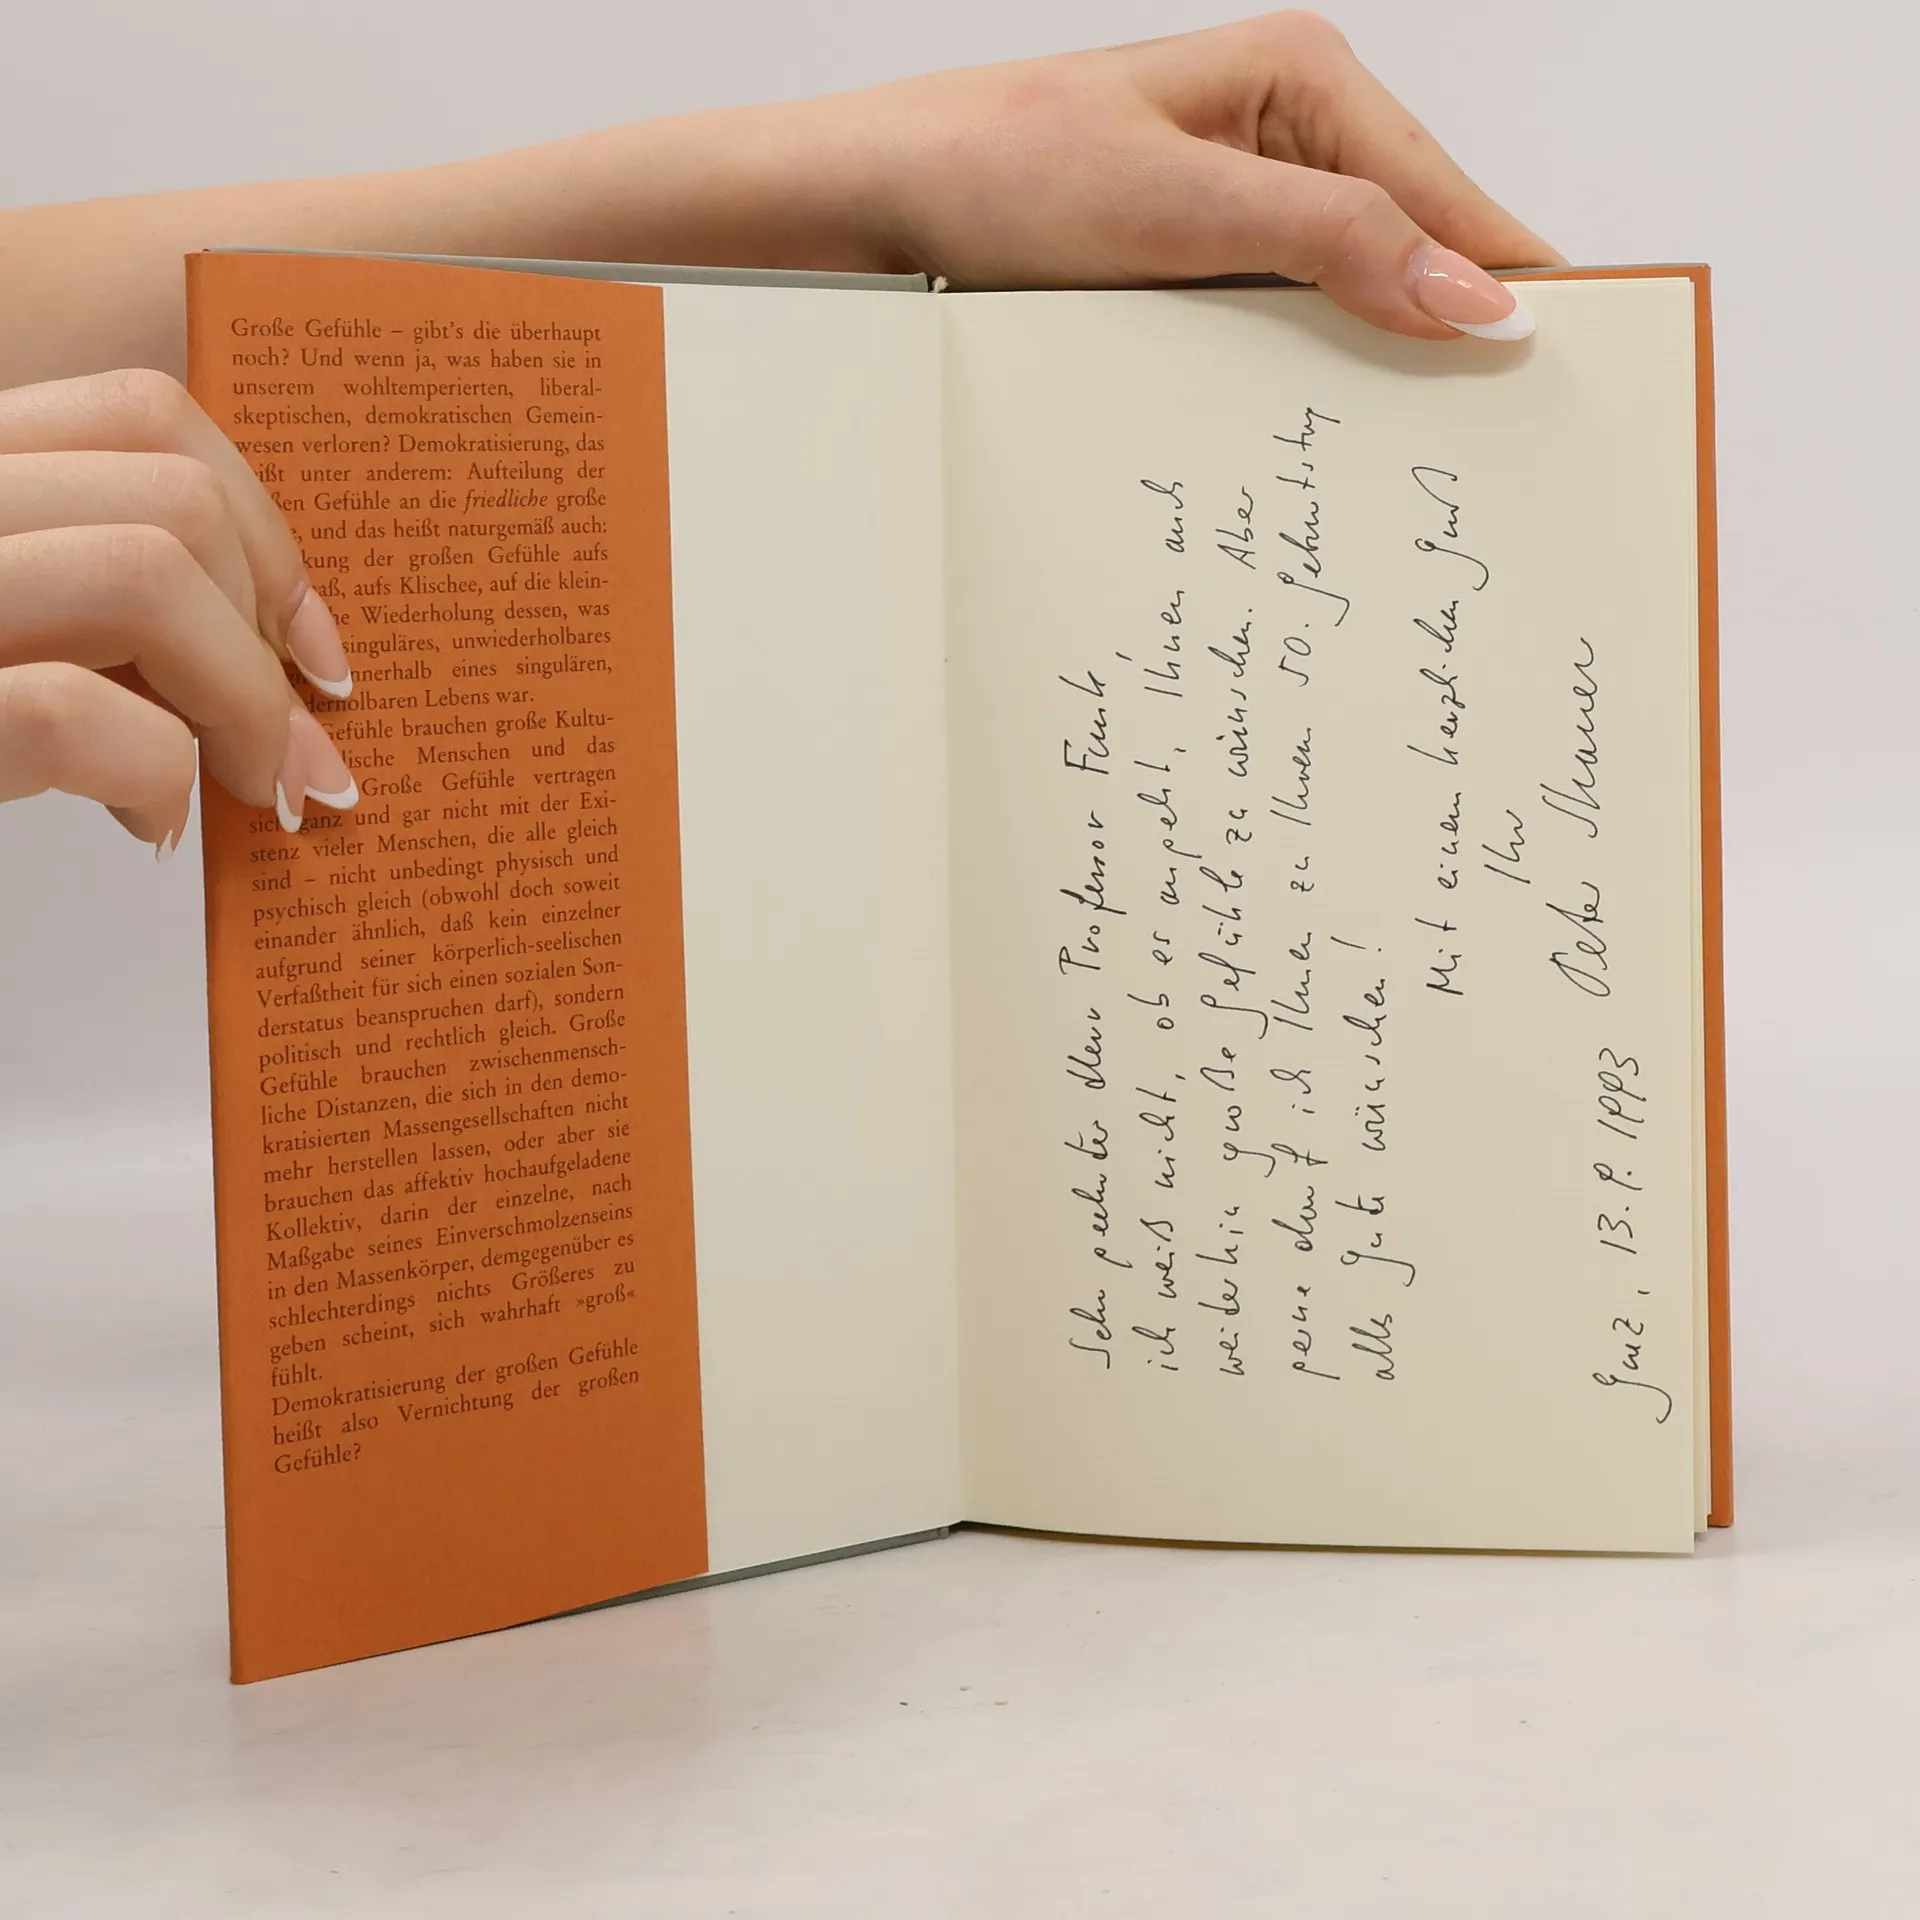 Große Gefühle – gibt's die überhaupt
noch? Und wenn ja, was haben sie in
unserem wohltemperierten, liberal-
skeptischen, demokratischen Gemein-
wesen verloren? Demokratisierung, das
ißt unter anderem: Aufteilung der
ßen Gefühle an die friedliche große
, und das heißt naturgemäß auch:
kung der großen Gefühle aufs
aß, aufs Klischee, auf die klein-
he Wiederholung dessen, was
singuläres, unwiederholbares
nnerhalb eines singulären,
derholbaren Lebens war.
Gefühle brauchen große Kultu-
lische Menschen und das
Große Gefühle vertragen
sich ganz und gar nicht mit der Exi-
stenz vieler Menschen, die alle gleich
sind – nicht unbedingt physisch und
psychisch gleich (obwohl doch soweit
einander ähnlich, daß kein einzelner
aufgrund seiner körperlich-seelischen
Verfaßtheit für sich einen sozialen Son-
derstatus beanspruchen darf), sondern
politisch und rechtlich gleich. Große
Gefühle brauchen zwischenmensch-
liche Distanzen, die sich in den demo-
kratisierten Massengesellschaften nicht
mehr herstellen lassen, oder aber sie
brauchen das affektiv hochaufgeladene
Kollektiv, darin der einzelne, nach
Maßgabe seines Einverschmolzenseins
in den Massenkörper, demgegenüber es
schlechterdings nichts Größeres zu
geben scheint, sich wahrhaft »groß«
fühlt.
Demokratisierung der großen Gefühle
heißt also Vernichtung der großen
Gefühle?
Sehr geehrter Herr Professor Funk,
ich weiß nicht, ob es angeht, Ihnen auch
weiterhin große Gefühle zu wünschen. Aber
gerne darf ich Ihnen zu Ihrem 50. Geburtstag
alles Gute wünschen!
Mit einem herzlichen Gruß
Ihr
Peter Strasser
Graz, 13.9.1993